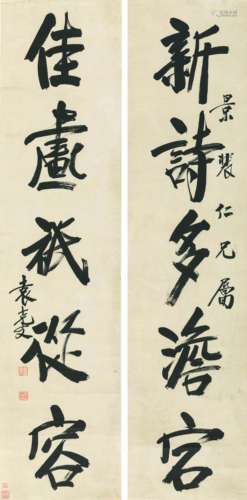 新詩多澹宕
景裴仁兄屬
佳畫祇從容
袁克文